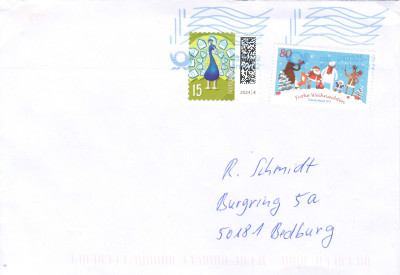 15
80
Frohe Weihnachten
R. Schmidt
Burgring 5a
50181 Bedburg